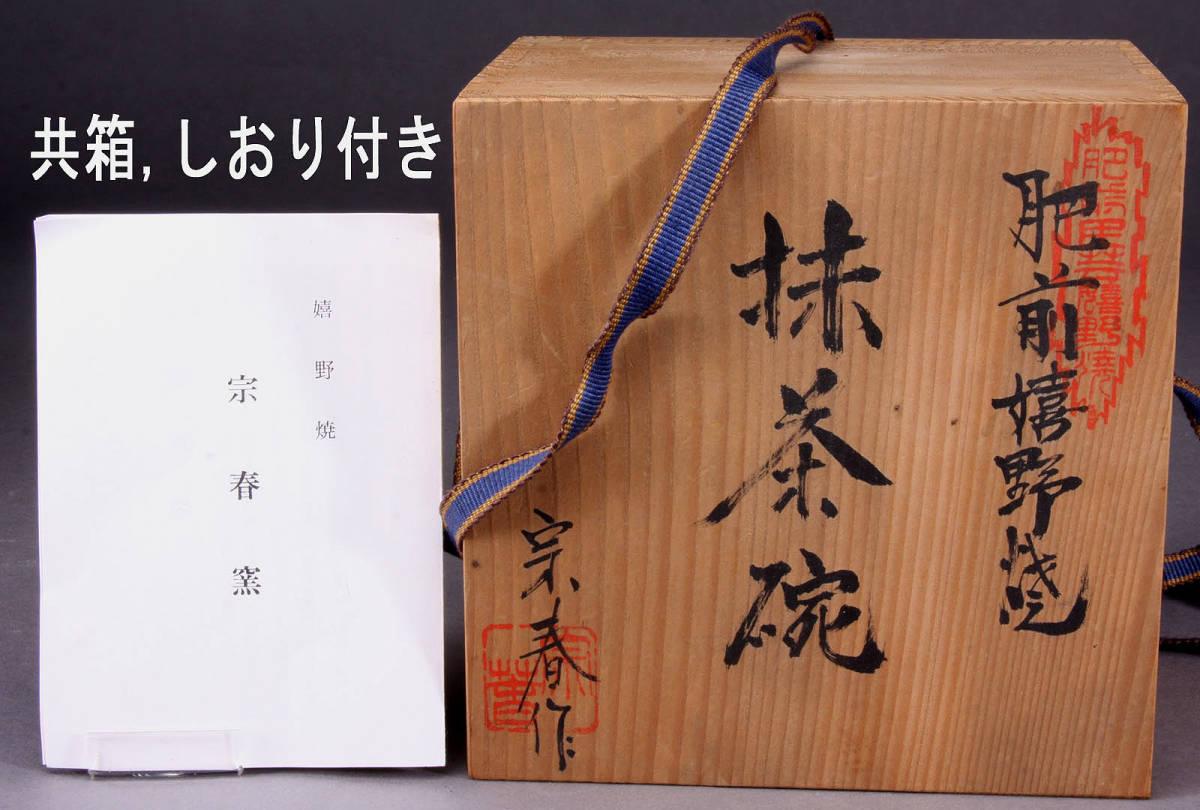 共箱, しおり付き
嬉野焼
宗春窯
肥前嬉野焼
抹茶碗
宗春作